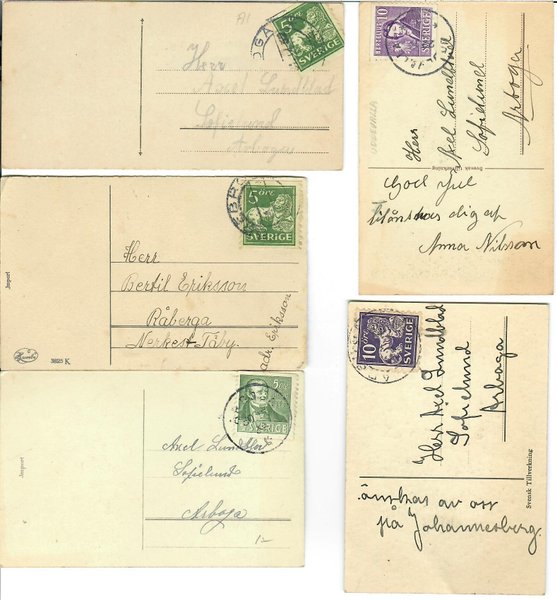 5 ÖRE
SVERIGE
Herr
Axel Lundblad
Sofielund
Arboga
5 ÖRE
SVERIGE
Herr
Bertil Eriksson
Råberga
Nerkes-Täby
Eriksson
Import
38125 K
5
SVERIGE
Axel Lundblad
Sofielund
Arboga
Import
1-
10
SVERIGE
Herr
Axel Lundblad
Sofielund
Arboga
Svensk Tillverkning
God Jul
tillönskas dig af
Anna Nilsson
10 ÖRE
SVERIGE
Herr Axel Lundblad
Sofielund
Arboga
Svensk Tillverkning
önskas av oss
på Johannesberg.